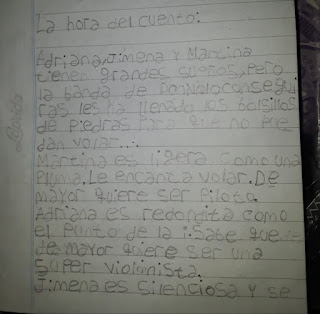 La hora del cuento:
Adriana, Jimena y Martina
tienen grandes sueños, pero
la banda de Donnoloconsegui
ras les ha llenado los bolsillos
de piedras para que no pue
dan volar...
Martina es ligera como una
pluma. Le encanta volar. De
mayor quiere ser piloto.
Adriana es redondita como
el punto de la i. Sabe que
de mayor quiere ser una
super violinista.
Jimena es silenciosa y se